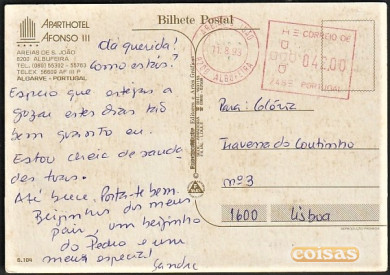 APARTHOTEL
AFONSO III
AREIAS DE S. JOÃO
8200 ALBUFEIRA
TEL. (089) 55382 - 55783
TELEX 56609 AF III P
ALGARVE - PORTUGAL
Bilhete Postal
Olá querida!
Como estás?
Espero que estejas a
gozar estes dias tão
bem quanto eu.
Estou cheia de sauda
des tuas.
Até breve. Porta-te bem.
Beijinhos dos meus
pais, um beijinho
do Pedro e um
meu especial!
Sandra
6.104
11.8.93
ALBUFEIRA
CORREIO DE
042,00
PORTUGAL
Para: Glória
Travessa do Coutinho
nº 3
1600 Lisboa
coisas